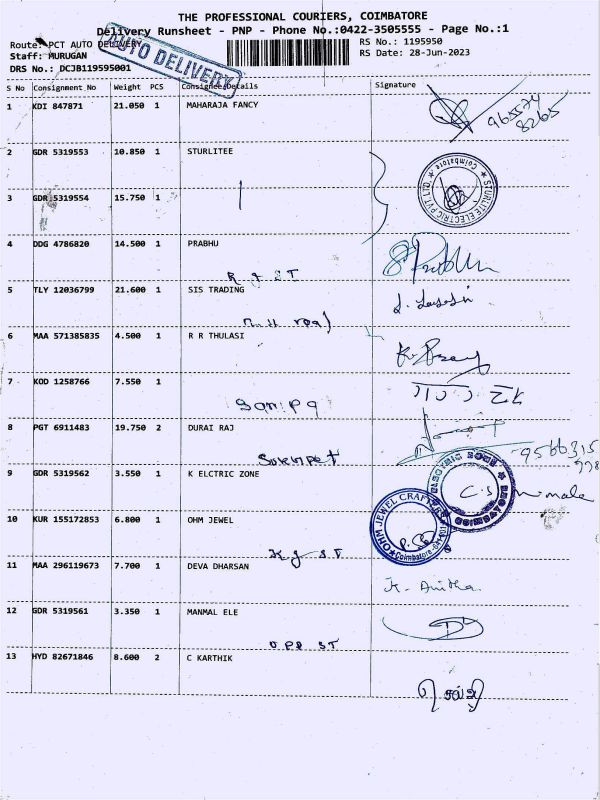 THE PROFESSIONAL COURIERS, COIMBATORE
Delivery Runsheet - PNP - Phone No.:0422-3505555 - Page No.:1
Route: PCT AUTO DELIVERY
RS No.: 1195950
Staff: MURUGAN
RS Date: 28-Jun-2023
DRS No.: DCJB119595001
AUTO DELIVERY
S No Consignment No Weight PCS Consignee Details Signature
1 KDI 847871 21.050 1 MAHARAJA FANCY
965574
8265
2 GDR 5319553 10.850 1 STURLITEE
STURLITE ELECTRIC PVT. LTD. Coimbatore
3 GDR 5319554 15.750 1
4 DDG 4786820 14.500 1 PRABHU
5 TLY 12036799 21.600 1 SIS TRADING
6 MAA 571385835 4.500 1 R R THULASI
7 KOD 1258766 7.550 1
8 PGT 6911483 19.750 2 DURAI RAJ
9566315
9 GDR 5319562 3.550 1 K ELCTRIC ZONE
ELECTRIC ZONE COIMBATORE
10 KUR 155172853 6.800 1 OHM JEWEL
JOHN JEWEL CRAFTERS
11 MAA 296119673 7.700 1 DEVA DHARSAN
K. Anitha
12 GDR 5319561 3.350 1 MANMAL ELE
OPP ST
13 HYD 82671846 8.600 2 C KARTHIK